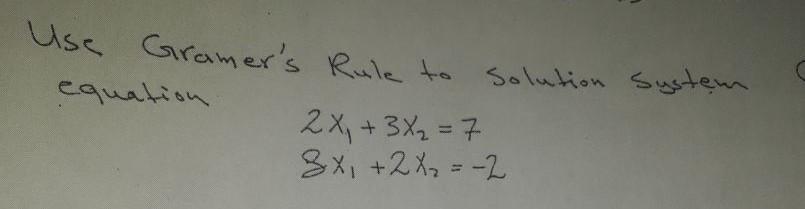 Use Gramer's Rule to Solution System
equation
2X₁ + 3X₂ = 7
8X₁ + 2X₂ = -2